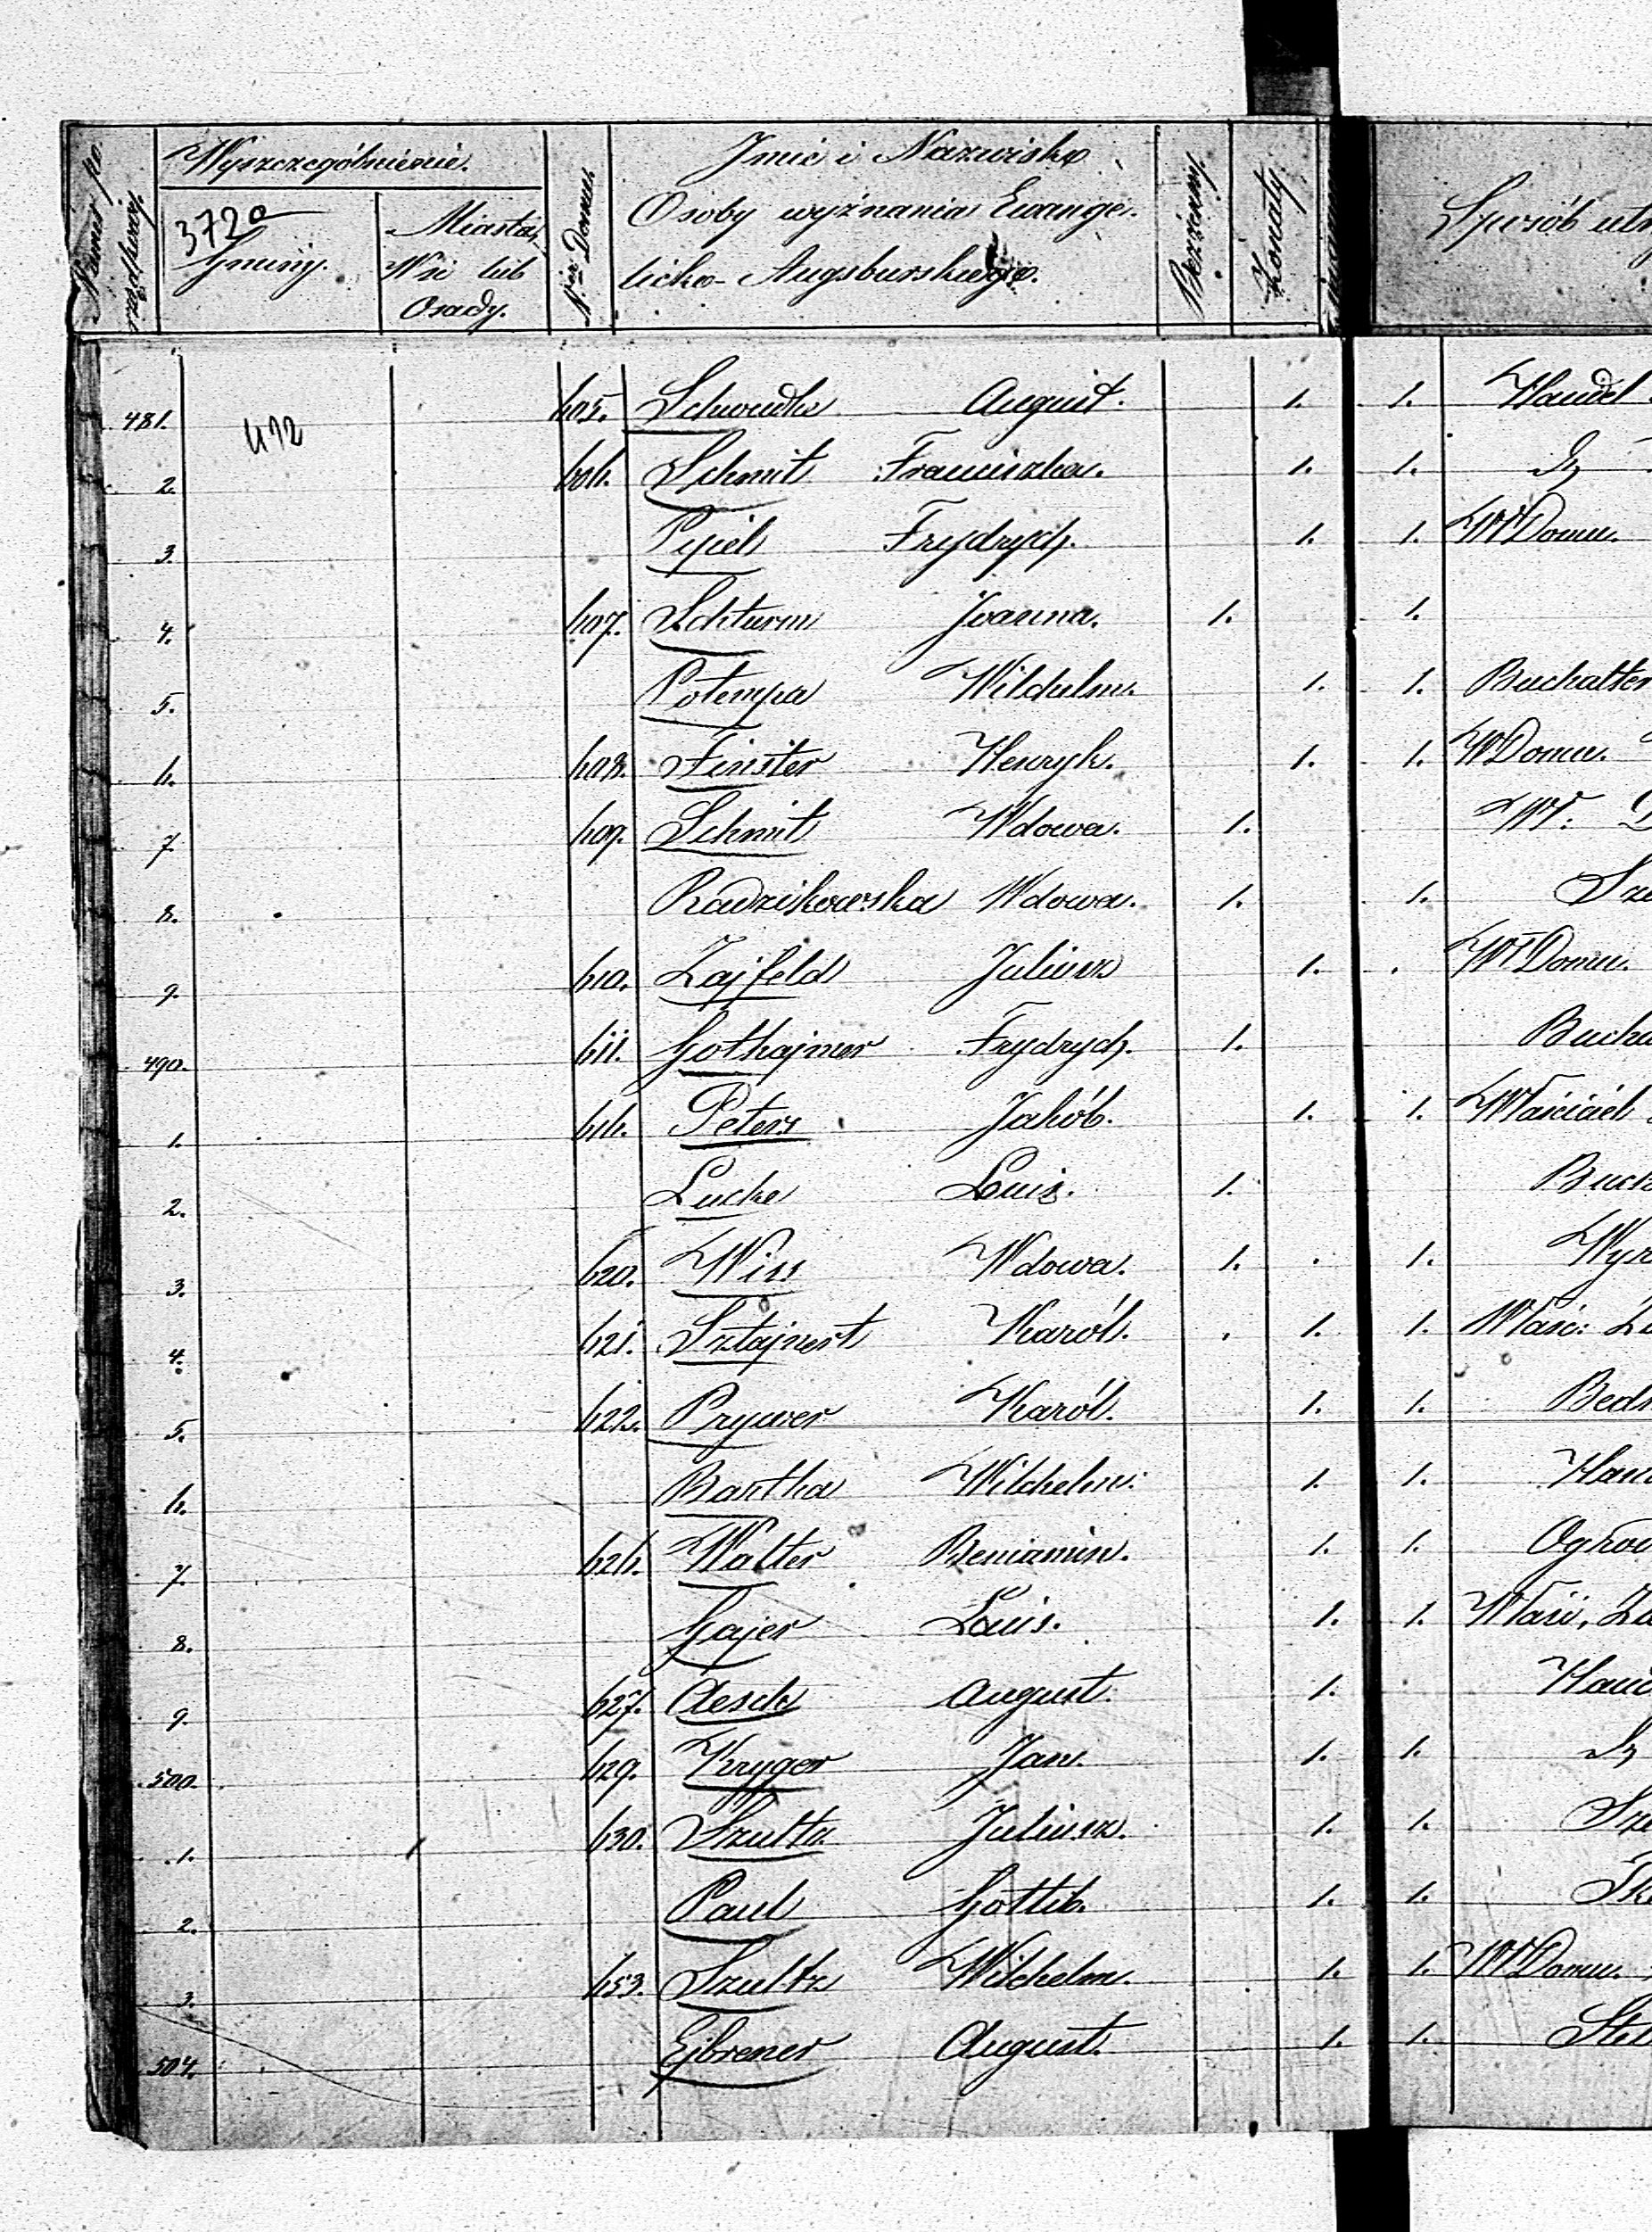 Numer po rządkowy.
Wyszczególnienie.
372a
Gminy.
Miasta,
Wsi lub
Osady.
N-er Domu.
Imie i Nazwisko
Osoby wyznania Ewange-
licko-Augsburskiego.
Bezżenny.
Żonaty.
Sposób
472
481. 605. August. 1. 1. Handel
2. 606. Schmit Franciszka. 1. 1. Dy
3. Pyiel Frydrych. 1. 1. Wł Domu.
4. 607. Schturm Joanna. 1. 1.
5. Potempa Wilchelm. 1. 1. Buchalter
6. 608. Finster Henryk. 1. 1. W Domu.
7. 609. Schmit Wdowa. 1. Wł:
8. Radzikowska Wdowa. 1. 1.
9. 610. Zajfeld Juliusz 1. Wł Domu.
490. 611. Gothajner Frydrych. 1. Bucha
1. 616. Peters Jakób. 1. 1. Właściciel
2. Lucke Louis. 1. Buch
3. 620. Wiss Wdowa. 1. 1. Wyr
4. 621. Sztajnert Karól. 1. 1. Właśc:
5. 622. Prywer Karól. 1. 1. Bedn
6. Bartha Wilchelm. 1. 1. Han
7. 626. Walter Beniamin. 1. 1. Ogrod
8. Gajer Louis. 1. 1. Właśc.
9. 627. Aesch August. 1. Hand
500. 629. Kryger Jan. 1. 1. Dy
1. 630. Szultz Juliusz. 1. 1.
2. Paul Gottlib. 1. 1.
3. 653. Szultz Wilchelm. 1. 1. Wł Domu.
504. Ejbrener August. 1. 1. Stel